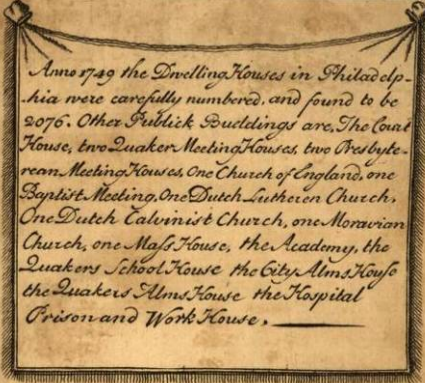 Anno 1749 the Dwelling Houses in Philadelp-
-hia were carefully numbered, and found to be
2076. Other Publick Bueldings are, The Court
House, two Quaker Meeting Houses, two Presbyte-
rean Meeting Houses, One Church of England, one
Baptist Meeting, One Dutch Lutheren Church,
One Dutch Calvinist Church, one Moravian
Church, one Mass House, the Academy, the
Quakers School House the City Alms House
the Quakers Alms House the Hospital
Prison and Work House.